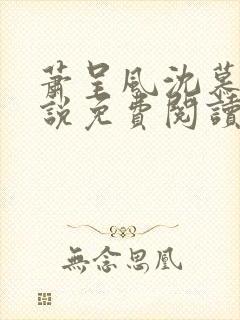 蕭呈風沈慕
說免費閱讀
無念思凰